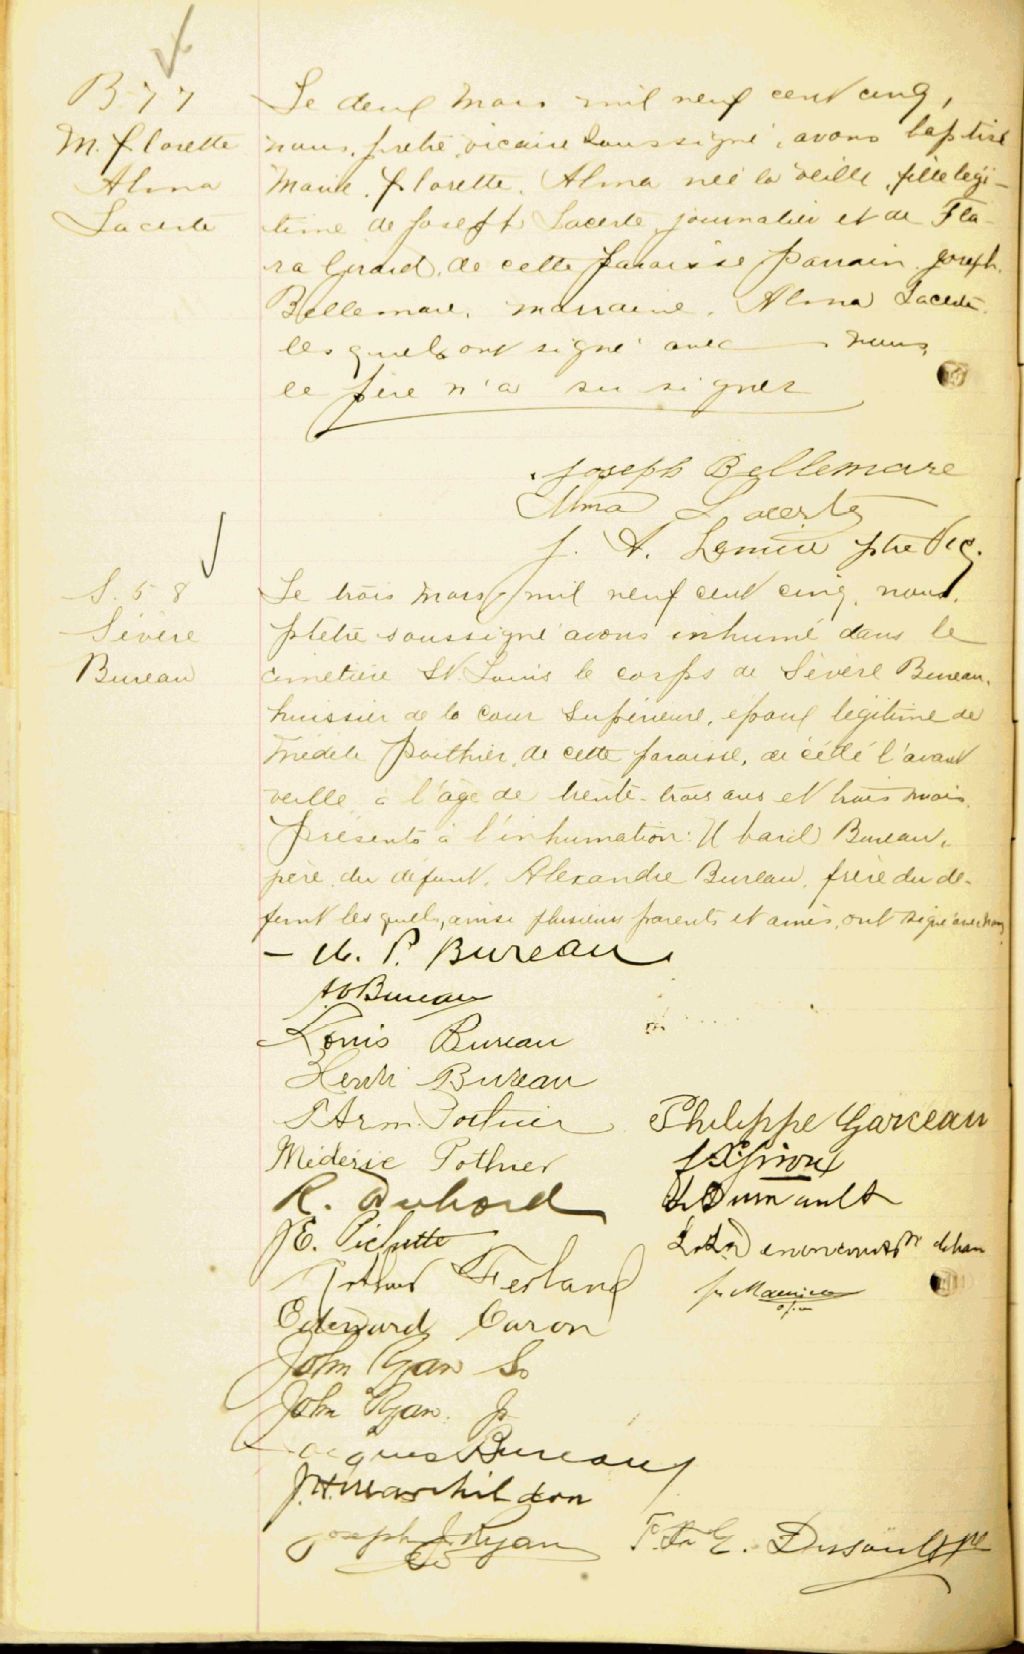 B 77
M. Florette
Alma
Lacerte
Le deux mars mil neuf cent cinq,
nous, prêtre vicaire soussigné, avons baptisé
Marie, Florette, Alma née la veille, fille légi-
time de Joseph Lacerte, journalier et de Flo-
ra Girard, de cette paroisse parrain Joseph
Bellemare, marraine, Alma Lacerte
lesquels ont signé avec nous,
le père n'a su signer
Joseph Bellemare
Alma Lacerte
J. A. Lemire ptre Vic.
S. 58
Sévère
Bureau
Le trois mars mil neuf cent cinq, nous,
prêtre soussigné avons inhumé dans le
cimetière St Louis le corps de Sévère Bureau,
huissier de la cour Supérieure, époux légitime de
de cette paroisse, décédé l'avant
veille à l'âge de trente-trois ans et trois mois
Présents à l'inhumation: Bureau,
père du défunt, Alexandre Bureau, frère du dé-
funt lesquels, ainsi plusieurs parents et amis, ont signé avec nous
P. Bureau
Bureau
Louis Bureau
Henri Bureau
P Arm Pothier
Philippe Garceau
Méderic Pothier
R. Dubord
J E. Pichette
Arthur Ferland
Edouard Caron
John Ryan Sr
John Ryan Jr
Jacques Bureau
J. H. Marchildon
Joseph J. Ryan
F. X. E. Dusault